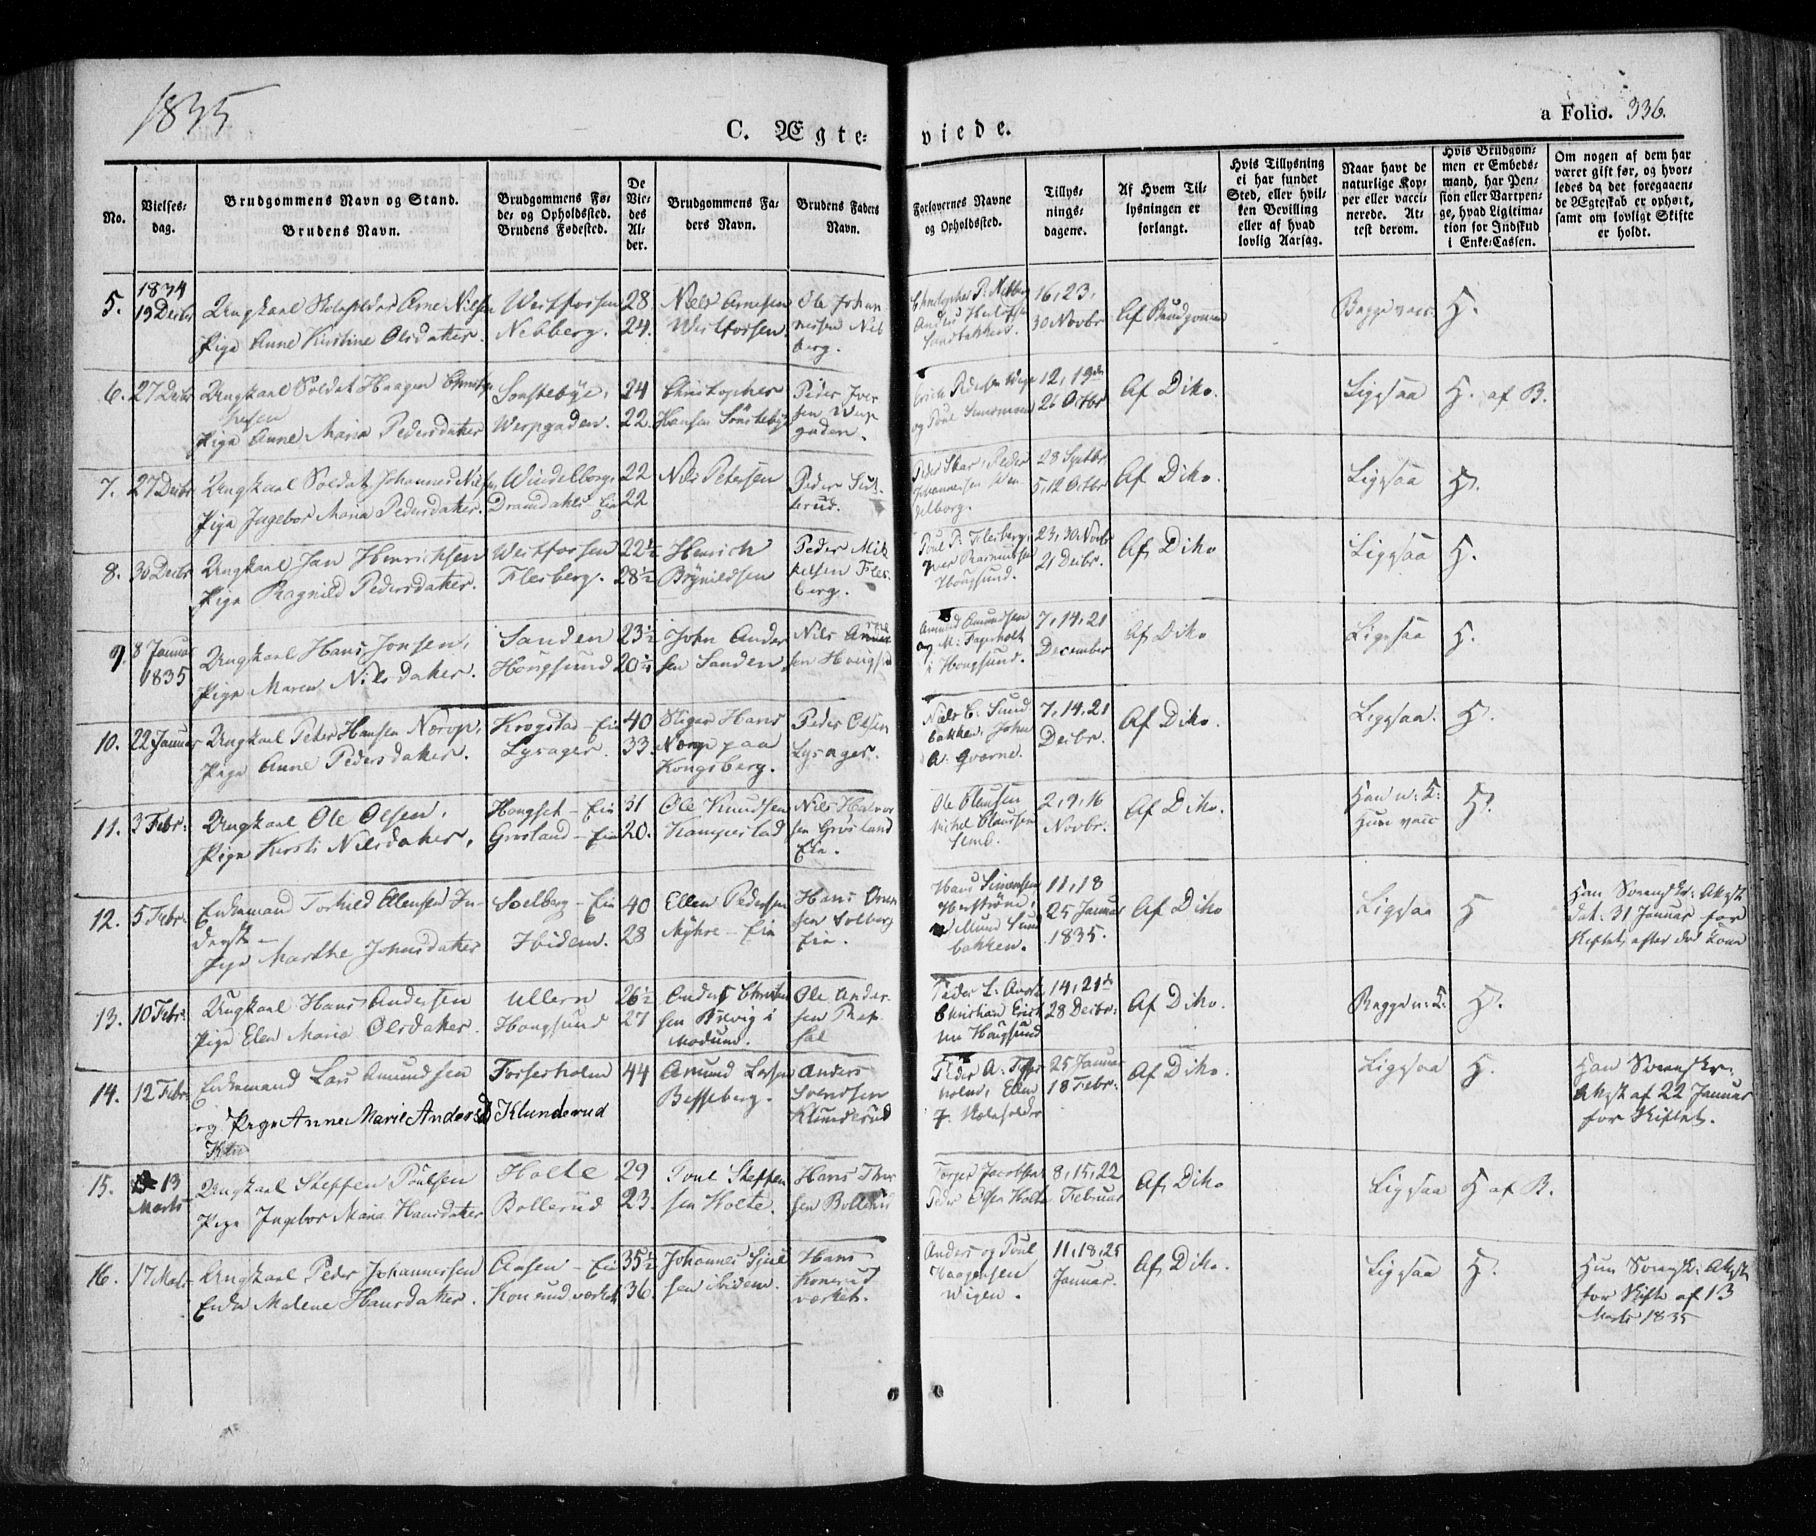 1835
C. Ægte-
viede.
a Folio. 336.
No.
Vielses-
dag.
Brudgommens Navn og Stand.
Brudens Navn.
Brudgommens Fø-
de- og Opholdssted.
Brudens Fødested.
De
Vie-
des
Al-
der.
Brudgommens Fa-
ders Navn.
Brudens Faders
Navn.
Forlovernes Navne
og Opholdssted.
Tillys-
nings-
dagene.
Af Hvem Til-
lysningen er
forlangt.
Hvis Tillysning
ei har fundet
Sted, eller hvil-
ken Bevilling
eller af hvad
lovlig Aarsag.
Naar havt de
naturlige Kop-
per eller vacci-
nerede. At-
test derom.
Hvis Brudgom-
men er Embeds-
mand, har Pen-
sion eller Vartpen-
ge, hvad Ligitima-
tion for Indskud
i Enke-Cassen.
Om nogen af dem har
været gift før, og hvor-
ledes da det foregaaen-
de Ægteskab er ophørt,
samt om lovligt Skifte
er holdt.
5.
1834
19 Decbr
Ungkarl Arne Nilsen
Pige Anne Kirstine Olsdatter.
Westfossen
Nebberg.
28
24.
Niels Arnesen
Westfossen.
Ole Johan
nesen Neb
berg.
Christopher P. Nebberg
Anders
16, 23,
30 Novbr
Af Brudgommen
Begge vacc.
H.
6.
27 Decbr
Ungkarl Soldat Haagen Christo
phersen
Pige Anne Maria Pedersdatter
Sønstebye,
Werpgaden.
24
22.
Christopher
Hansen Sønstebye
Peder Iver
sen Werp
gaden.
og Poul
12, 19de
26 Octbr
Af Diho.
Ligesaa
H. af B.
7.
27 Decbr
Ungkarl Soldat Johannes Nils
Pige Ingebor Maria Pedersdatter.
Windelborg,
Dramdahls Eie
22
22
Nils Petersen
Peder
Peder Skar, Peder
Johannesen Win
delborg.
28 Septbr.
5, 12 Octbr
Af Diho.
Ligesaa
H.
8.
30 Decbr
Ungkarl Jan Henrichsen
Pige Ragnild Pedersdatter.
Westfossen
Flesberg.
22½
28½
Henrich
Brynildsen
Peder Mik
kelsen Fles-
berg.
Poul P. Flesberg,
Iver Rasmussen
Hougsund.
23, 30 Novbr
21 Decbr.
Af Diho
Ligesaa
H.
9.
8 Januar
1835
Ungkarl Hans Jonsen,
Pige Maren Nilsdatter.
Sanden
Hougsund
23½
20½
John Ander
sen Sanden
Nils
sen Hougs
Amund Amundsen
og M. Fagerholt
i Hougsund.
7, 14, 21
December
Af Diho
Ligesaa
H.
10.
22 Januar
Ungkarl Peter Hansen Norop,
Pige Anne Pedersdatter.
Krogstad-Eie
Lysager.
40
33.
Hans
Norop paa
Kongsberg.
Peder Olsen
Lysager.
Niels C. Sund
bakken, John
A. Qværne.
7, 14, 21
Decbr.
Af Diho.
Ligesaa.
H.
11.
3 Febr.
Ungkarl Ole Olsen,
Pige Kirsti Nilsdatter,
Hougset-Eie
Grøsland-Eie
31
20.
Ole Knudsen
Kamperstad
Nils Halvor
sen Grøsland
Eie.
Ole Clausen
Mikel Claussen
Semb.
2, 9, 16
Novbr.
Af Diho
Han n: K:
Hun vacc
H.
12.
5 Febr.
Enkemand Torkild Ellensen In-
derst-
Pige Marthe Johnsdatter
Soelberg-Eie
Ibidem.
40
28
Ellen Pedersen
Myhre-Eie
Hans
sen Solberg
Eie.
Hans Simensen
Sund
bakken.
11, 18
25 Januar
1835.
Af Diho
Ligesaa
H
Han Sorenskr: Attest
dat: 31 Januar for
Skiftet efter død Kone
13.
10 Febr.
Ungkarl Hans Andersen
Pige Elen Maria Olsdatter.
Ullern
Hougsund
26½
27
Anders Christen
sen i
Modum.
Ole Ander-
sen
Peder L.
Christian
Hougsund
14, 21de
28 Decbr.
Af Diho.
Begge n: K:
H.
14.
12 Febr.
Enkemand Lars Amundsen
og Pige Anne Marie Andersd
Forserholm
Klunderud
44
Amund Larsen
Besseberg.
Anders
Svendsen
Klunderud
Peder A.
holm, Ellen
25 Januar
18 Febr.
Af Diho.
Ligesaa
H.
Han Sorenskr:
Attest af 22 Januar
for Skiftet.
15.
13
Marts
Ungkarl Steffen Poulsen
Pige Ingebor Maria Hansdatter
Holte
Bollerud
29
23.
Poul Steffen
sen Holte.
Hans Thor
sen Bollerud
Torger Jacobsen
Peder Olsen Holte
8, 15, 22
Februar
Af Diho
Ligesaa
H af B.
16.
17 Marts
Ungkarl Peder Johannesen
Enke Malene Hansdatter.
Aasen-Eie
Konerudværket
35½
36.
Johannes
sen ibidem.
Hans
Konerud
værket.
Anders og Poul
Haagensen
Wigen.
11, 18, 25
Januar.
Af Diho.
Ligesaa
H.
Hun Sorensk: Attest
for Skifte af 13
Marts 1835